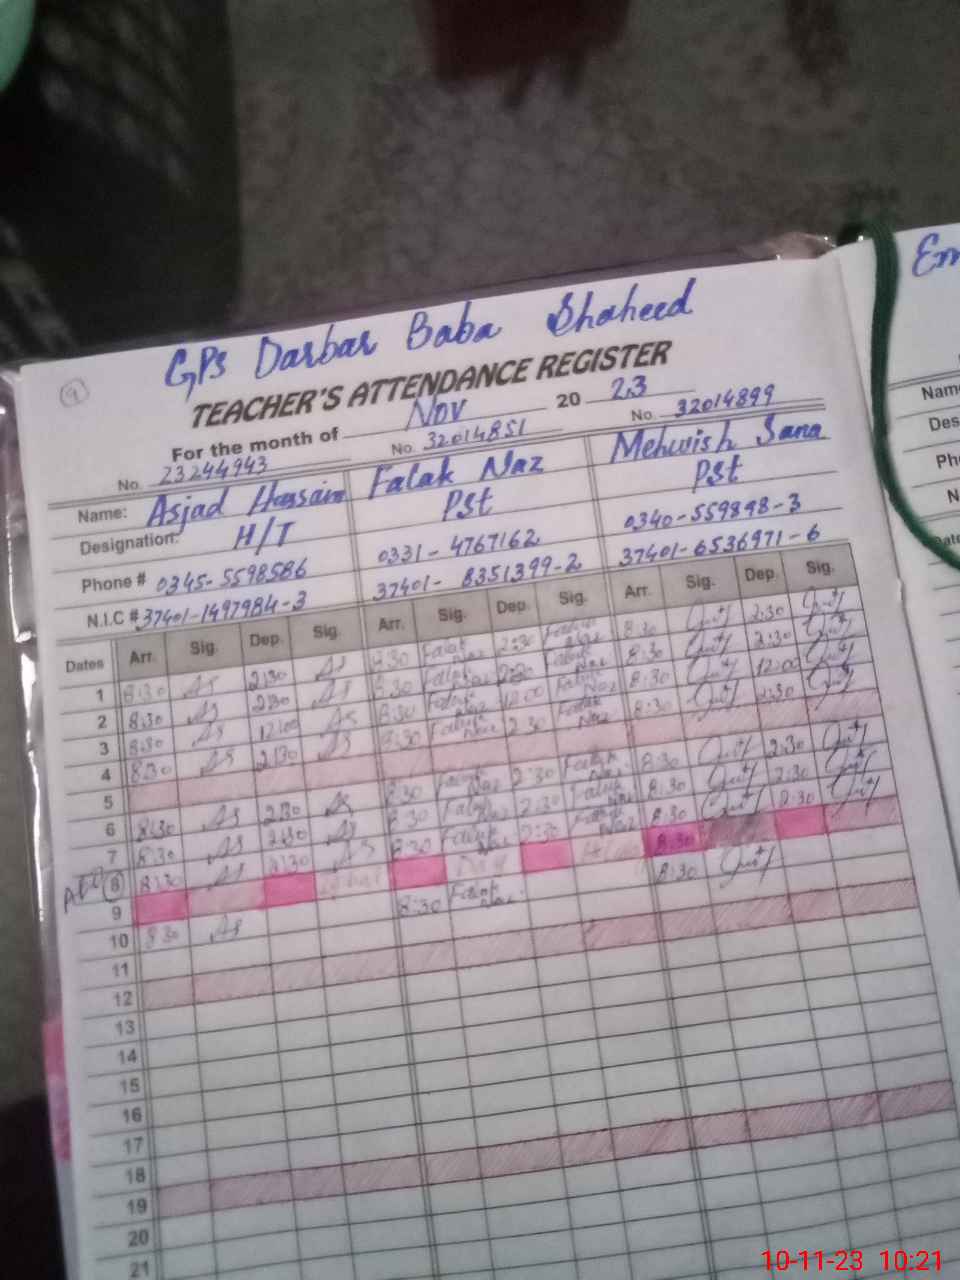 GPS Darbar Baba Shaheed
TEACHER'S ATTENDANCE REGISTER
For the month of Nov 2023
No. 23244943 No. 32014851 No. 32014899
Name: Asjad Hussain Falak Naz Mehwish Sana
Designation: H/T Pst Pst
Phone # 0345-5598586 0331-4767162 0340-559898-3
N.I.C # 37401-1497984-3 37401-8351399-2 37401-6536971-6
Dates Arr. Sig. Dep. Sig. Arr. Sig. Dep. Sig. Arr. Sig. Dep. Sig.
1 8:30 AS 2:30 AS 8:30 Falak Naz 2:30 Falak Naz 8:30 2:30
2 8:30 AS 2:30 AS 8:30 Falak Naz 2:30 Falak Naz 8:30 2:30
3 8:30 AS 12:00 AS 8:30 Falak Naz 12:00 Falak Naz 8:30 12:00
4 8:30 AS 2:30 AS 8:30 Falak Naz 2:30 Falak Naz 8:30 2:30
5
6 8:30 AS 2:30 AS 8:30 Falak Naz 2:30 Falak Naz 8:30 2:30
7 8:30 AS 2:30 AS 8:30 Falak Naz 2:30 Falak Naz 8:30 2:30
8 8:30 AS 2:30 AS 8:30 Falak Naz 2:30 Falak Naz 8:30 2:30
9 Day 8:30
10 8:30 AS 8:30 Falak Naz 8:30
11
12
13
14
15
16
17
18
19
20
21
Name
Des
Pho
N
Date
10-11-23 10:21